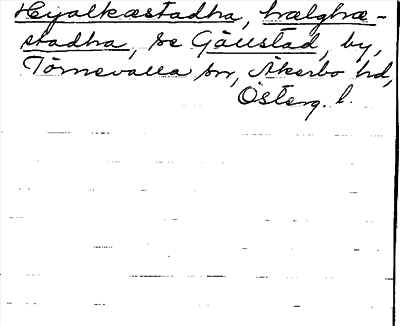 Hjalkæstadha, hælghæ-
stadha, se Gällstad, by,
Törnevalla sn, Åkerbo hd,
Österg. l.